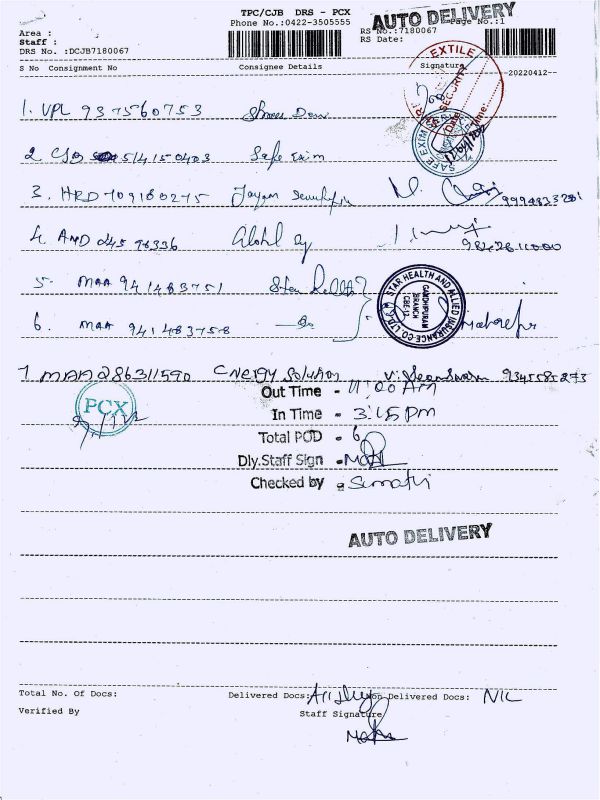 TPC/CJB DRS - PCX
AUTO DELIVERY
Phone No.:0422-3505555
Page No.:1
Area :
Staff :
DRS No. :DCJB7180067
RS No.:7180067
RS Date:
S No Consignment No Consignee Details Signature
--20220412--
TEXTILE
SECURITY
Date:
Time:
1. VPL 937560753
SAFE EXIM
2. CJB 514150403 Safe Exim
3. HRD 709180275 Jayam 9994833201
4. AMD 24596336
5. MAA 941483751 Star
6. MAA 941483758 - Do
STAR HEALTH AND ALLIED INSURANCE CO. LTD.
GANDHIPURAM
BRANCH
CBE-12.
7. MAA 286311590 Energy Solution 9345585273
PCX
Out Time - 11:00 Am
In Time - 3:15 Pm
Total POD - 6
Dly.Staff Sign -
Checked by - Sumathi
AUTO DELIVERY
Total No. Of Docs: Delivered Docs: Non Delivered Docs: NIL
Verified By Staff Signature